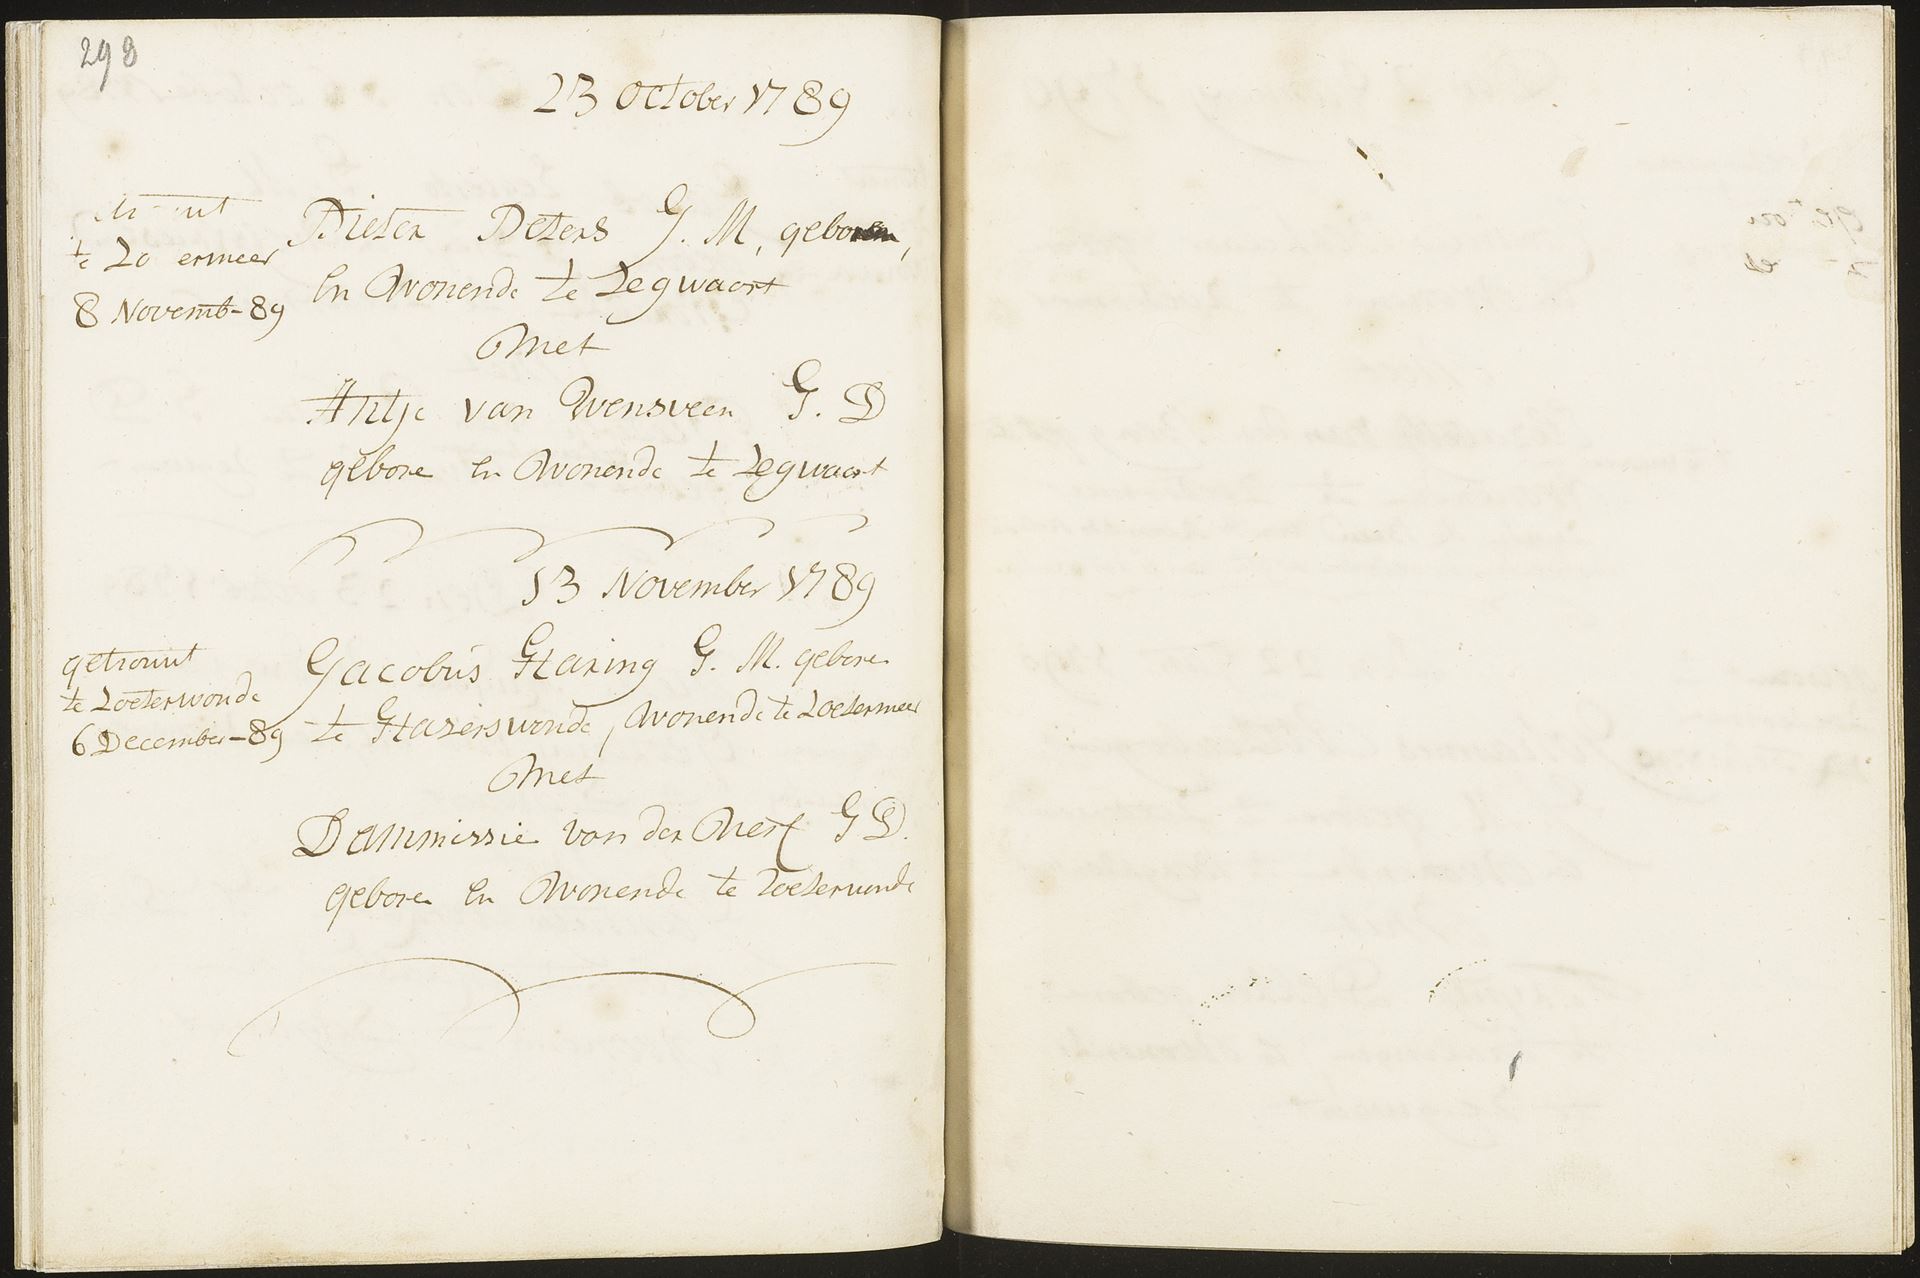 298
23 october 1789
te Zo ermeer
8 Novemb-89
Pieter Peters G. M, geboren,
en Wonende te Zegwaart
Met
Antje van Wensveen G. D
gebore en Wonende te Zegwaart
13 November 1789
getrouwt
te Zoeterwoude
6 December-89
Jacobus Haring G. M. gebore
te Hazerswoude, Wonende te Zoetermeer
Met
Dammissie van der Meij G D.
gebore en Wonende te Zoeterwoude